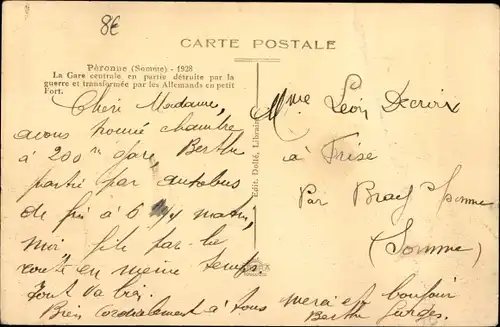 8€
CARTE POSTALE
Péronne (Somme) - 1928
La Gare centrale en partie détruite par la
guerre et transformée par les Allemands en petit
Fort.
Chère Madame,
avons trouvé chambre
à 200 m gare, Berthe
partie par autobus
de à 6 matin,
moi file par la
route en même temps
Tout va bien.
Bien cordialement à tous merci et bonjour
Berthe
Edit. Dolié, Libraire
Mme Léon Decroix
à Frise
Par Bray s/ Somme
(Somme)